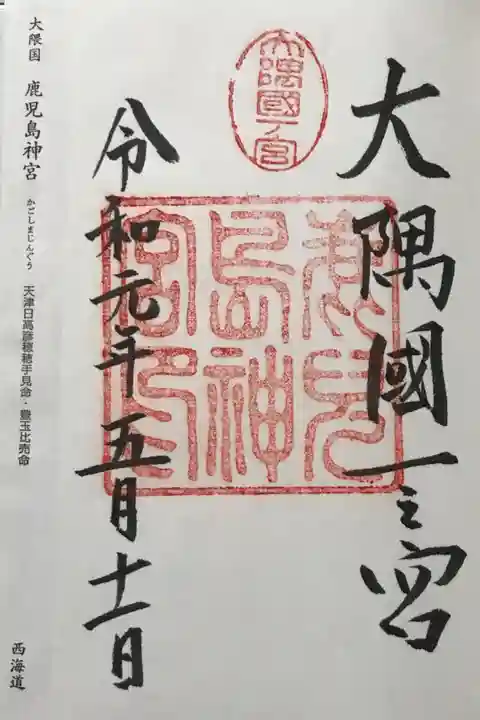 大隅國一之宮
大隅國一ノ宮
鹿児
島神
宮印
令和元年五月十一日
大隈国 鹿児島神宮 かごしまじんぐう 天津日高彦穂穂手見命・豊玉比売命 西海道